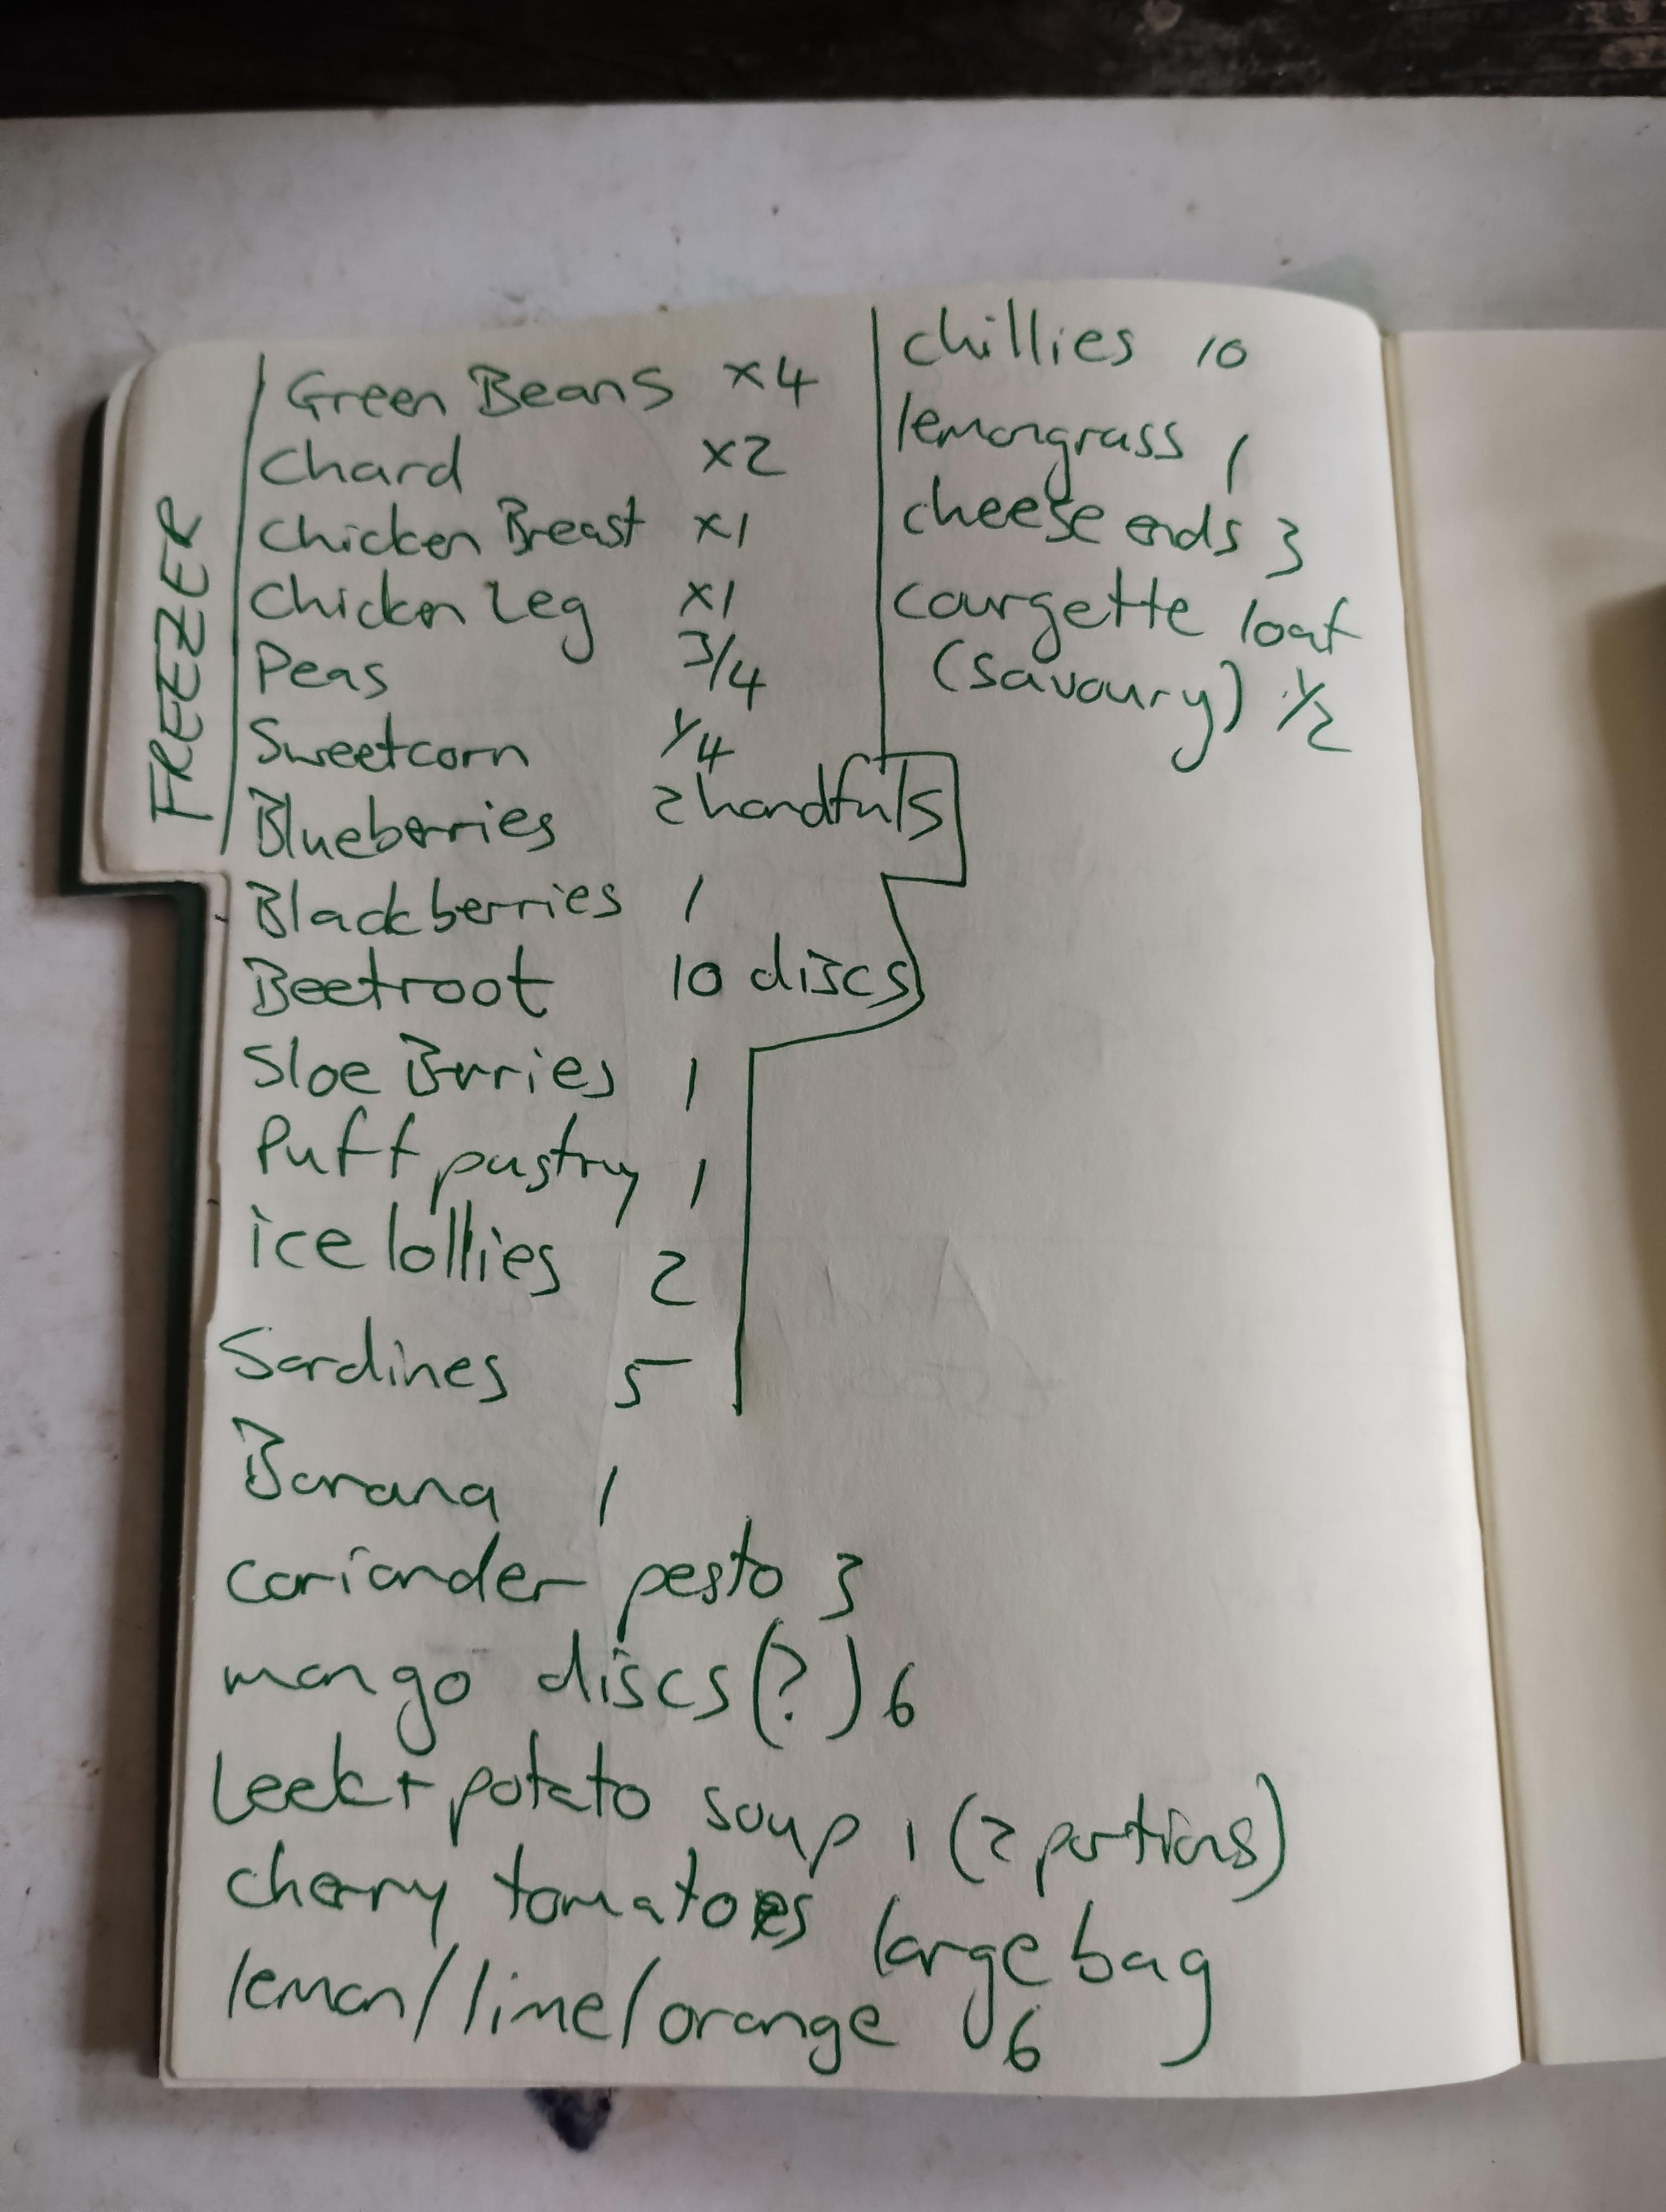 FREEZER
Green Beans x4
Chard x2
Chicken Breast x1
Chicken Leg x1
Peas 3/4
Sweetcorn 1/4
Blueberries 2 handfuls
Blackberries 1
Beetroot 10 discs
Sloe Berries 1
Puff pastry 1
ice lollies 2
Sardines 5
Banana 1
coriander pesto 3
mango discs (?) 6
Leek + potato soup 1 (2 portions)
cherry tomatoes large bag
lemon/lime/orange 6
chillies 10
lemongrass 1
cheese ends 3
courgette loaf
(savoury) 1/2